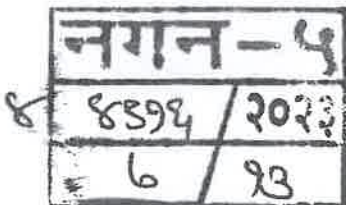 नगन - ५
४ ४३१६ / २०२३
७ / १३